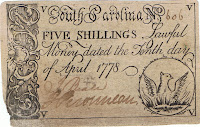 South Carolina No 606
FIVE SHILLINGS, Lawful
Money dated the Tenth day
of April 1778